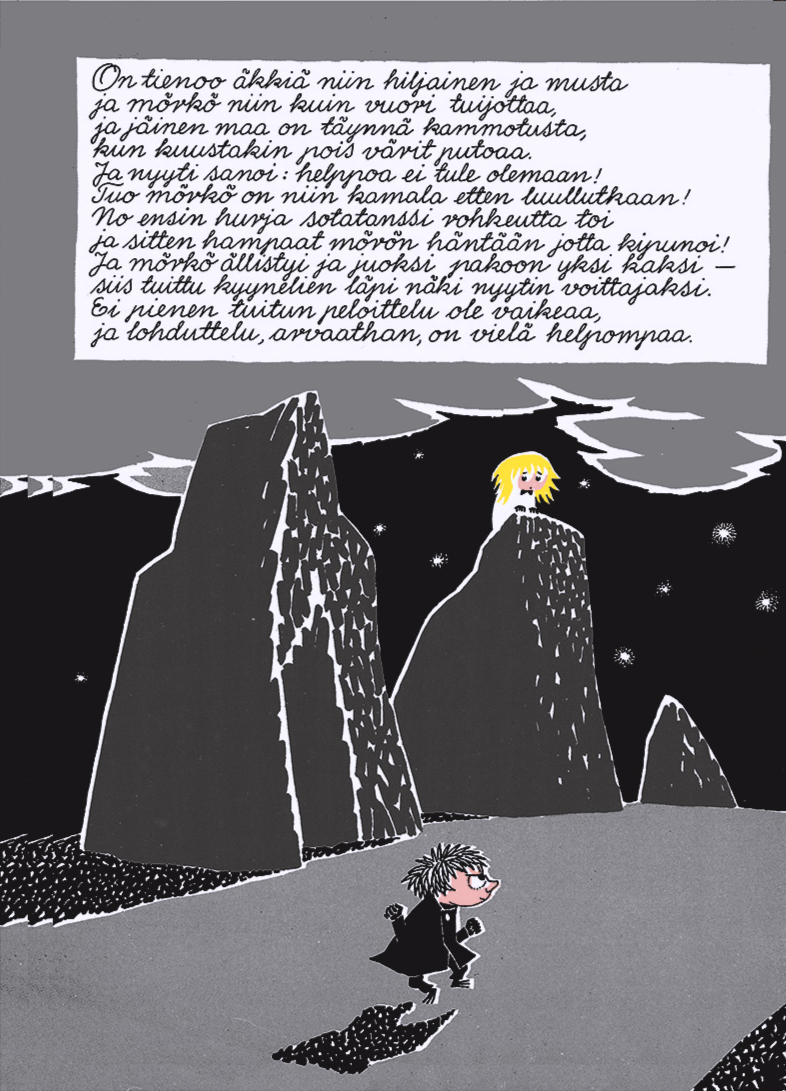 On tienoo äkkiä niin hiljainen ja musta
ja mörkö niin kuin vuori tuijottaa,
ja jäinen maa on täynnä kammotusta,
kun kuustakin pois värit putoaa.
Ja nyyti sanoi: helppoa ei tule olemaan!
Tuo mörkö on niin kamala etten luullutkaan!
No ensin hurja sotatanssi rohkeutta toi
ja sitten hampaat mörön häntään jotta kipunoi!
Ja mörkö ällistyi ja juoksi pakoon yksi kaksi —
siis tuittu kyynelien läpi näki nyytin voittajaksi.
Ei pienen tuitun peloittelu ole vaikeaa,
ja lohduttelu, arvaathan, on vielä helpompaa.